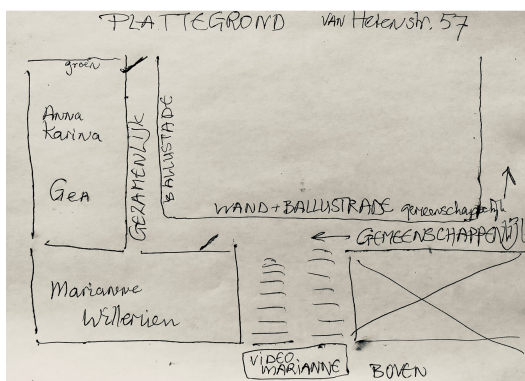 PLATTEGROND VAN Helenstr. 57
groen
Anna
Karina
Gea
GEZAMENLIJK
BALLUSTADE
WAND + BALLUSTRADE gemeenschappelijk
GEMEENSCHAPPENLIJK
Marianne
VIDEO
MARIANNE
BOVEN